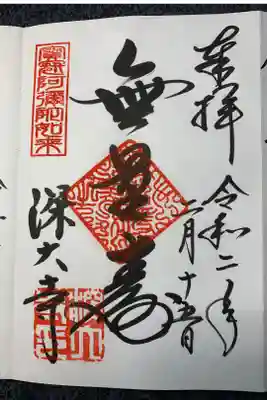 奉拝
令和二年
二月十五日
無量寿
寳冠阿彌陀如来
深大寺